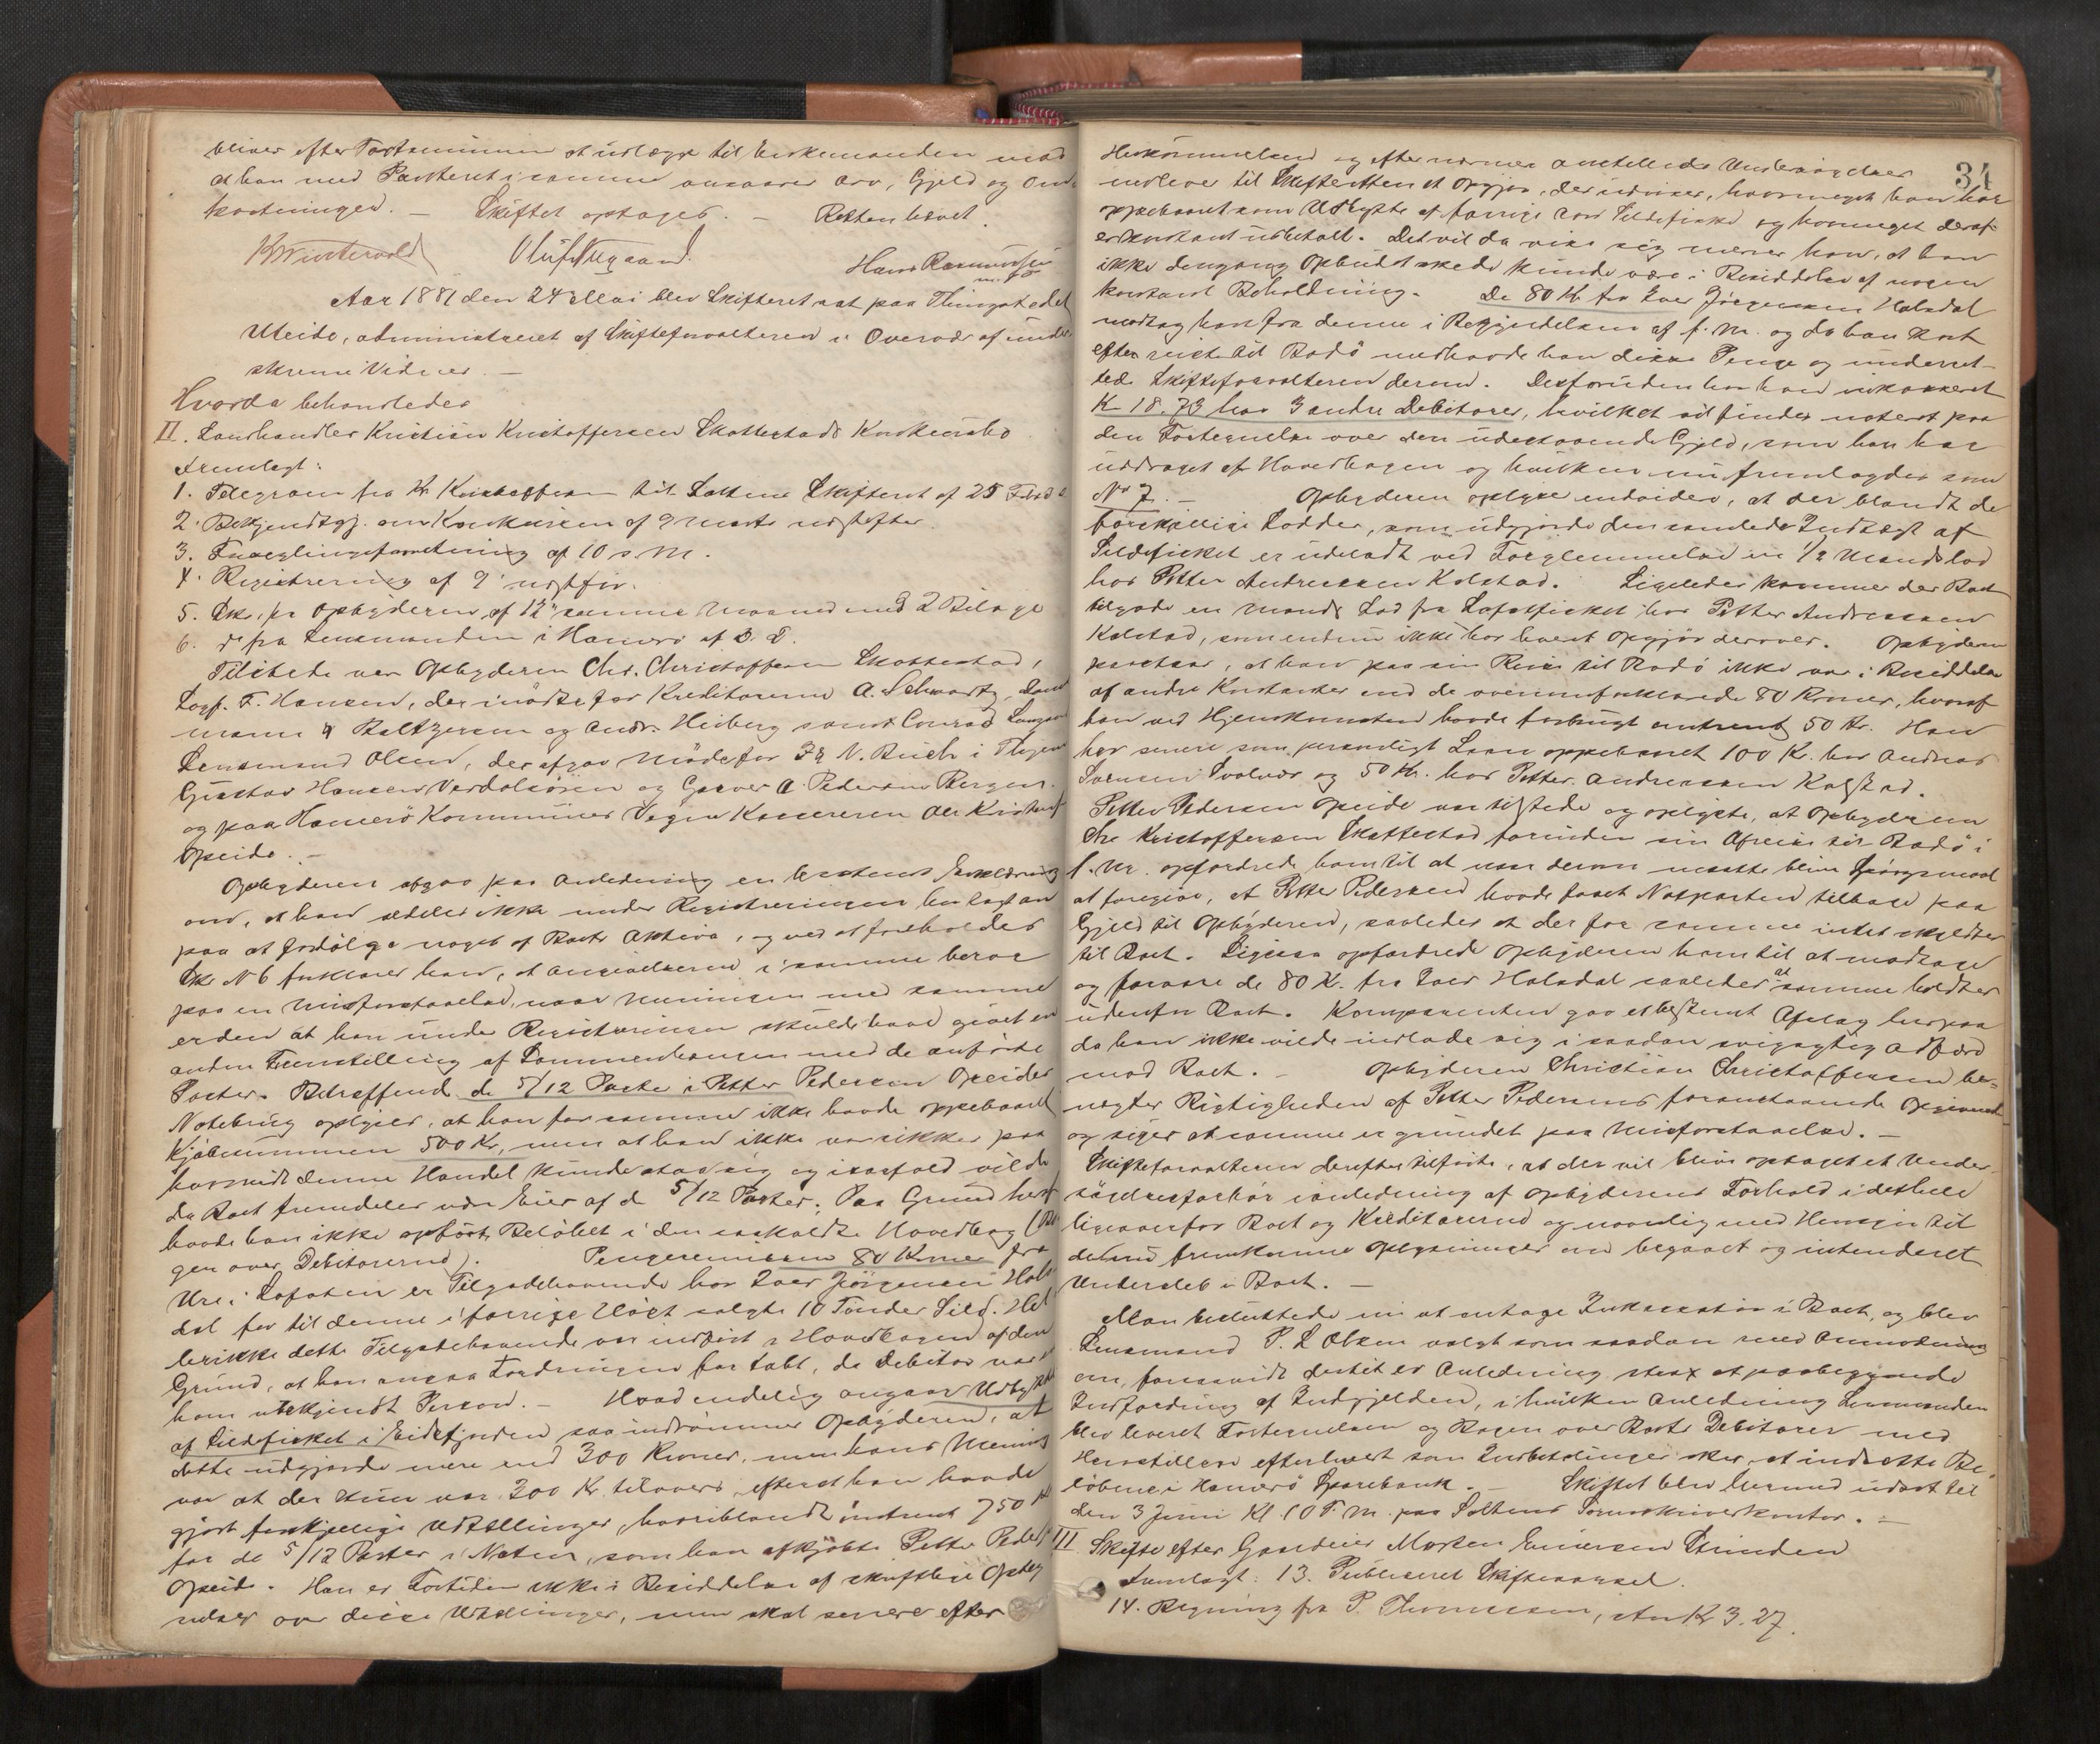 bliver efter Testamentum at udlægge til Enkemanden mod
at han med Pantteret i samme ansvarer Arv, Gjeld og Om-
kostninger. — Skiftet optages. — Retten hævet.
KWintervold Oluf Nygaard. Hans Rasmussen
m. f. P.
Aar 1881 den 24 Mai blev Skifteret sat paa Thingstedet
Uteide, administreret af Skifteforvalteren i Overvær af under-
skrevne Vidner. —
Hvorda behandledes
II. Landhandler Kristian Kristoffersen Skottestads Konkursbo
Fremlagt:
1. Telegram fra Kr Kristoffersen til Saltens Skifteret af 25 Febr
2. Bekjendtgj. om Konkursen af 9 Marts næstefter
3. Forseglingsforretning af 10 s. M.
4. Registrering af 9 næstfør.
5. Skr. fra Opbyderen af 12 samme Maaned med 2 Bilage
6. do fra Lensmanden i Hamerø af s. D.
Tilstede var Opbyderen Chr. Christoffersen Skottestad,
Sagf. F. Hansen, der mødte for Kreditorerne A. Schwartz, Dane
mann & Baltzersen og Andr. Heiberg samt Conrad Langaard
Lensmand Olsen, der afgav Møde for Fr N. Buch i Thjem
Gustav Hansen Verdalsøren og Garver A. Pedersen Bergen.
og paa Hamerø Kommunes Vegne Kassereren Ole Kristens
Opeide. —
Opbyderen afgav paa Anledning en bestemt Erklæring
om, at han aldeles ikke under Registreringen har lagt an
paa at fordølge noget af Boets Aktiva, og ved at foreholdes
Skr N 6 forklarer han, at Angivelserne i samme beror
paa en Misforstaaelse, naar Meningen med samme
er den at han under Registreringen skulde have givet en
anden Fremstilling af Sammenhængen med de anførte
Poster. Betreffende de 5/12 Parter i Petter Pedersen Opeides
Notebrug oplyser, at han for samme ikke havde oppebaaret
Kjøbesummen 500 Kr, men at han ikke var sikker paa
hvorvidt denne Handel kunde staa sig og isaafald vilde
da Boet fremdeles være Eier af de 5/12 Parter. Paa Grund heraf
havde han ikke opført Beløbet i den saakaldte Hovedbog (Bo
gen over Debitorerne). Pengeremissen 80 Kroner fra
Ure i Lofoten er Tilgodehavende hos Iver Jørgensen Hals
dal for til denne i forrige Høst solgte 10 Tønder Sild. Hel
ler ikke dette Tilgodehavende var indført i Hovedbogen af den
Grund, at han ansaa Fordringen for tabt, da Debitor var
ham ubekjendt Person. — Hvad endelig angaar Udbyttet
af Sildefisket i Eidsfjorden saa indrømmer Opbyderen, at
dette udgjorde mere end 300 Kroner, men hans Mening
var at der kun var 300 Kr. tilovers, efterat han havde
gjort forskjellige Udtællinger, hvoriblandt indtrent 750 Kr
for de 5/12 Parter i Noten, som han afkjøbte Petter Peders
Opeide. Han er Fortiden ikke i Besiddelse af skriftlige Opteg
nelser over disse Udtællinger, men skal senere efter
34
Hukommelsen og efter nærmere anstillede Undersøgelser
indlevere til Skifteretten et Opgjør, der udviser, hvormeget han har
oppebaaret som Udbytte af forrige Aars Sildefiske og hvormeget deraf
er kontant udbetalt. Det vil da vise sig mener han, at han
ikke dengang Opbudet skede kunde være i Besiddelse af nogen
kontant Beholdning. De 80 Kr fra Iver Jørgensen Halsdal
modtog han fra denne i Begyndelsen af f. M. og da han kort
efter reiste til Bodø medhavde han disse Penge og underret-
tede Skifteforvalteren derom. Desforuden har han inkasseret
Kr 18. 73 hos 3 andre Debitorer, hvilket vil findes noteret paa
den Fortegnelse over den udestaaende Gjeld, som han har
uddraget af Hovedbogen og hvilken nu fremlagdes som
No 7. — Opbyderen oplyste endvidere, at der blandt de
forskjellige Lodder, som udgjorde den samlede Indtægt af
Sildefisket er udeladt ved Forglemmelse en 1/2 Mandslod
hos Petter Andreassen Kolstad. Ligeledes kommer der Boet
tilgode en Mands Lod fra Lofotfisket hos Petter Andreassen
Kolstad, som endnu ikke har leveret Opgjør derover. Opbyderen
paastaar, at han paa sin Reise til Bodø ikke var i Besiddelse
af andre Kontanter end de ovenomforklarede 80 Kroner, hvoraf
han ved Hjemkomsten havde forbrugt omtrent 50 Kr. Han
har senere som personligt Laan oppebaaret 100 Kr. hos Andreas
Sørensen Svolvær og 50 Kr. hos Petter Andreassen Kolstad.
Petter Pedersen Opeide var tilstede og oplyste, at Opbyderen
Chr Kristoffersen Skottestad forinden sin Afreise til Bodø i
f. M. opfordrede ham til at naar derom maatte blive Spørgsmaal
at foregive, at Petter Pedersen havde faaet Notparten tilbage paa
Gjeld til Opbyderen, saaledes at der for samme intet skyldtes
til Boet. Ligesaa opfordrede Opbyderen ham til at modtage
og forvare de 80 Kr. fra Iver Halsdal saaledes at samme holdtes
udenfor Boet. Komparenten gav et bestemt Afslag herpaa
da han ikke vilde indlade sig i saadan svigagtig Adfærd
mod Boet. — Opbyderen Christian Christoffersen be-
nægter Rigtigheden af Petter Pedersens foranstaaende Opgivende
og siger at samme er grundet paa Misforstaaelse. —
Skifteforvalteren derefter tilførte, at der vil blive optaget et Under-
søgelsesforhør i anledning af Opbyderens Forhold i det hele
ligeoverfor Boet og Kreditorerne og navnlig med Hensyn til
de nu fremkomne Oplysninger om begaaet og intenderet
Underslæb i Boet. —
Man besluttede nu at antage Inkassator i Boet, og blev
Lensmand P. L Olsen valgt som saadan med Anmodning
om, forsaavidt dertil er Anledning, strax at paabegynde
Indfordring af Indgjelden, i hvilken Anledning Lensmanden
blev leveret Fortegnelsen og Bogen over Boets Debitorer med
Henstillen efterhvert som Indbetalinger sker, at indsætte Be-
løbene i Hamerø Sparebank. — Skiftet blev hermed udsat til
den 3 Juni Kl 10 F. M. paa Saltens Sorenskriverkontor. —
III Skifte efter Gaardeier Morten Einersen Strinden
Fremlagt: 13. Publiceret Skiftevarsel.
14. Regning fra P. Thomessen, stor Kr 3. 27.